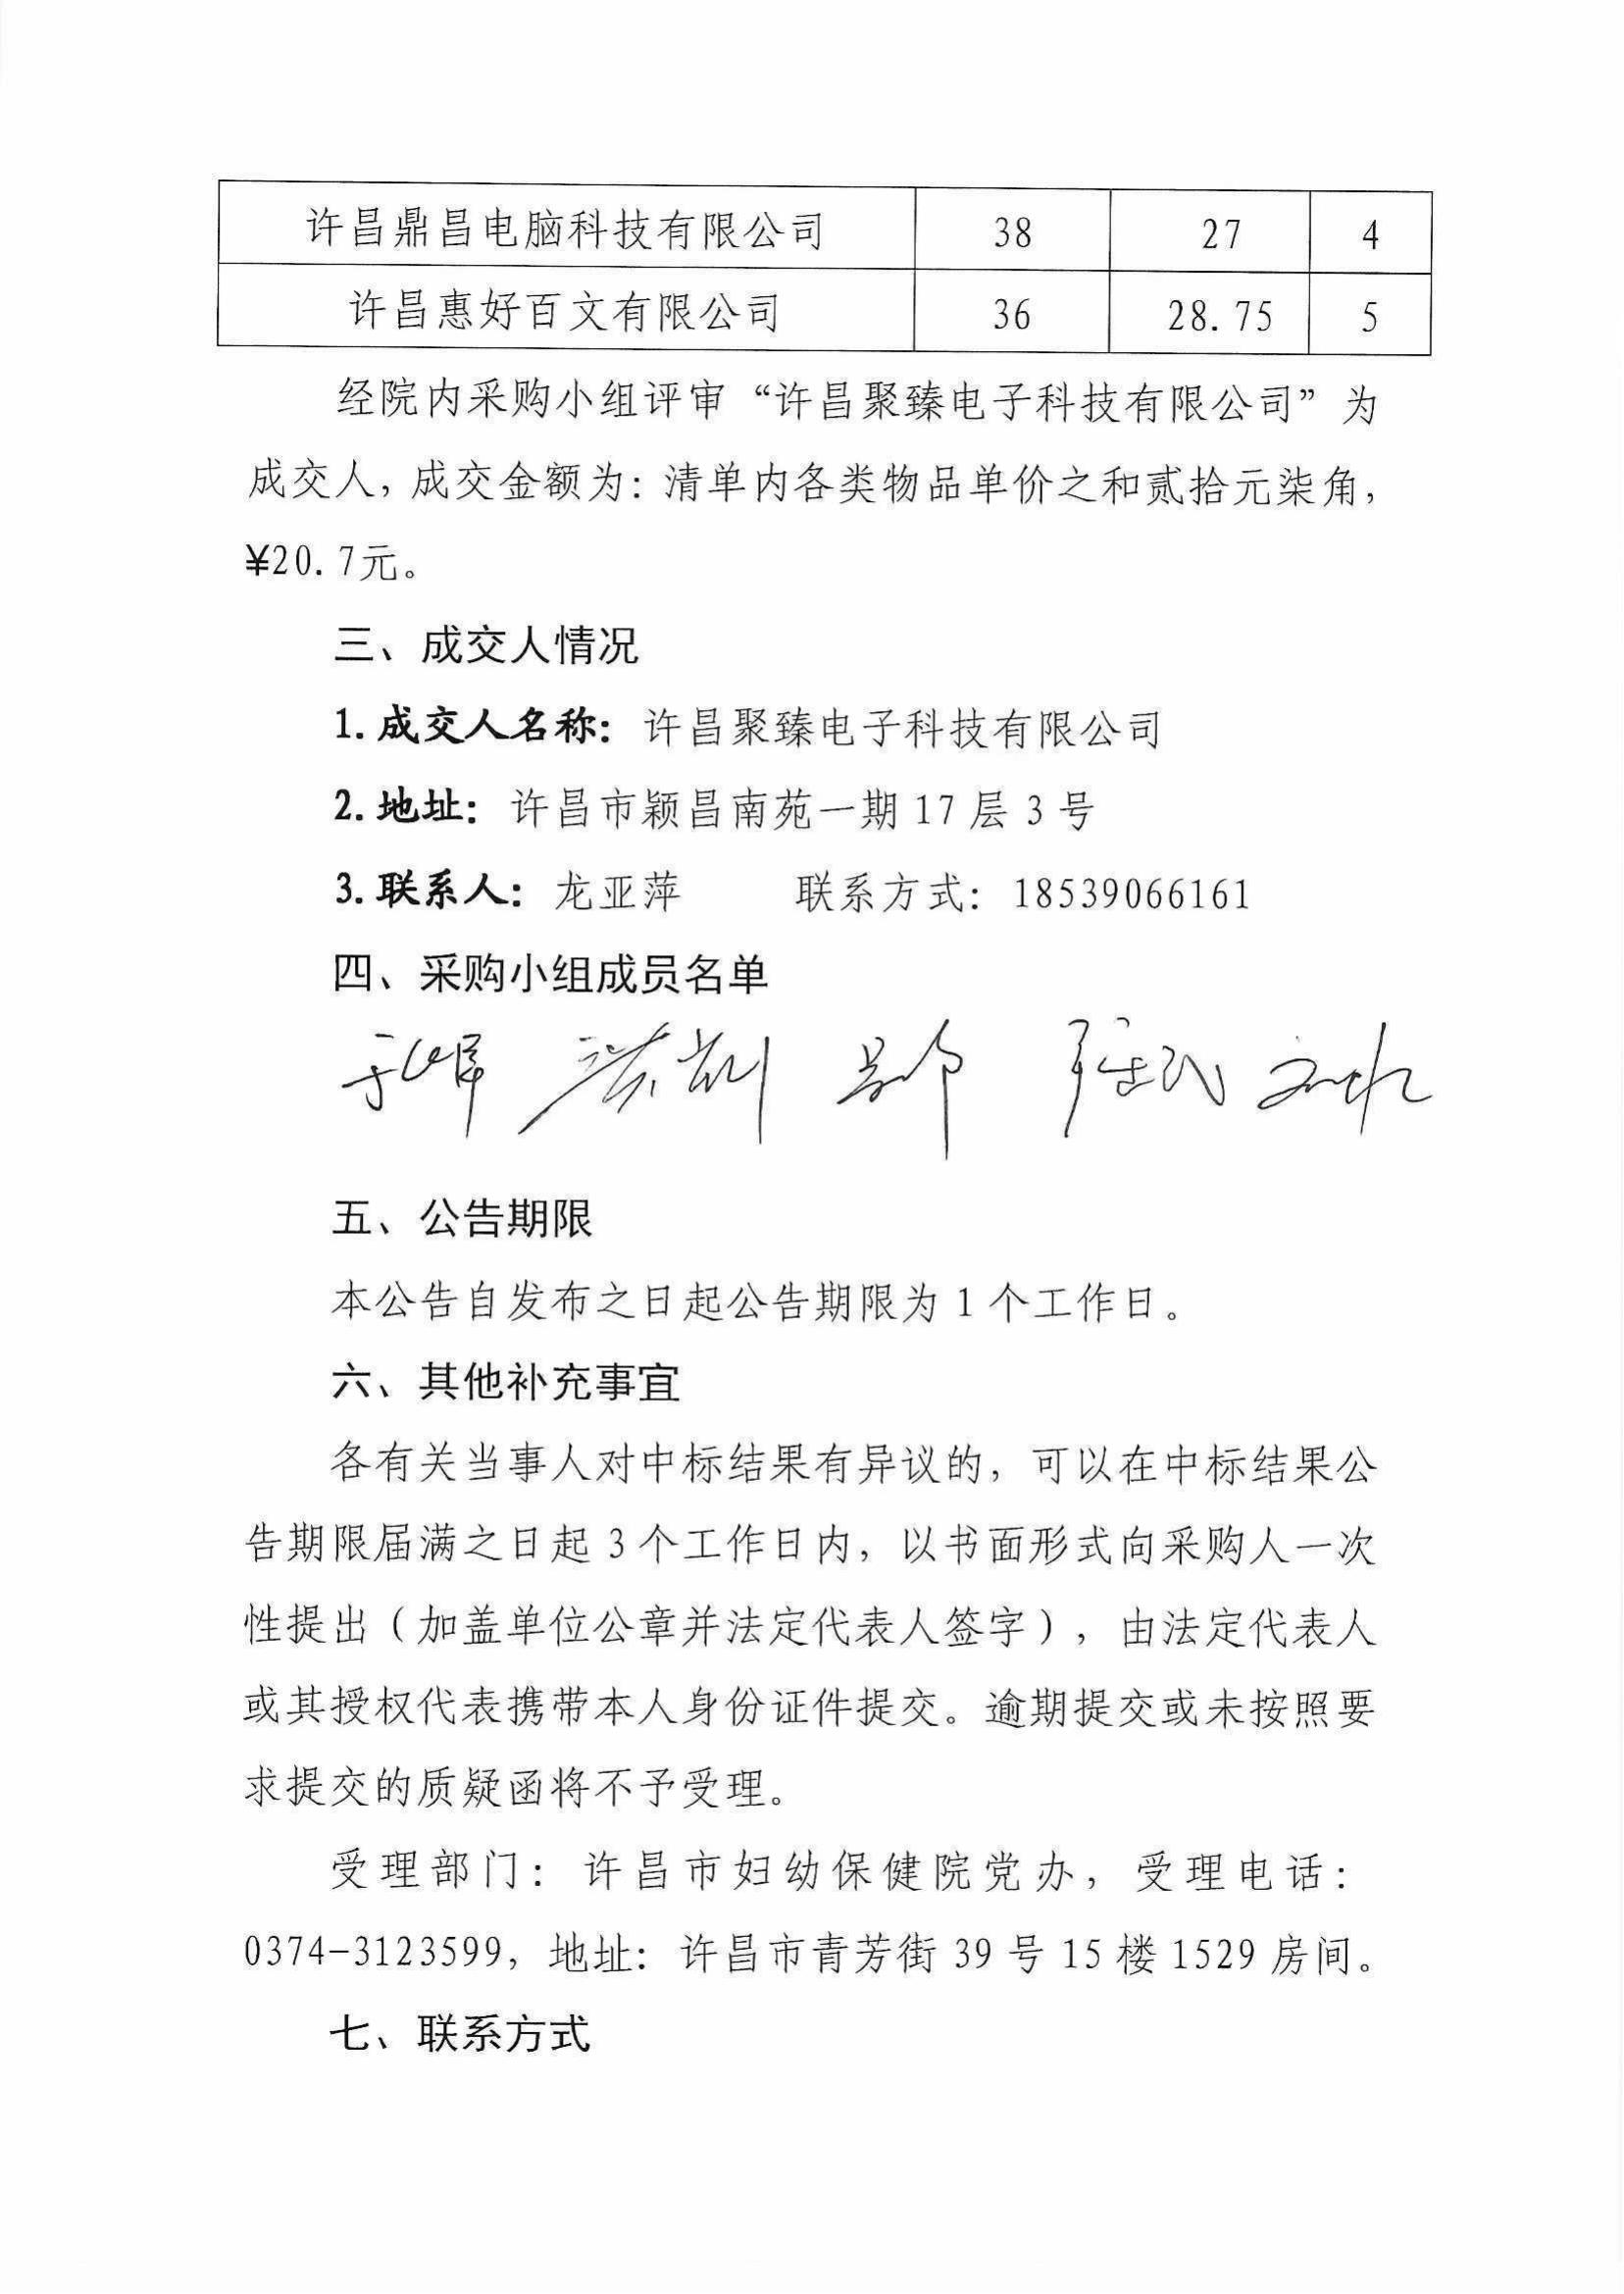 许昌鼎昌电脑科技有限公司 38 27 4
许昌惠好百文有限公司 36 28.75 5
经院内采购小组评审“许昌聚臻电子科技有限公司”为
成交人,成交金额为:清单内各类物品单价之和贰拾元柒角,
¥20.7元。
三、成交人情况
1.成交人名称:许昌聚臻电子科技有限公司
2.地址:许昌市颖昌南苑一期17层3号
3.联系人:龙亚萍 联系方式:18539066161
四、采购小组成员名单
五、公告期限
本公告自发布之日起公告期限为1个工作日。
六、其他补充事宜
各有关当事人对中标结果有异议的,可以在中标结果公
告期限届满之日起3个工作日内,以书面形式向采购人一次
性提出(加盖单位公章并法定代表人签字),由法定代表人
或其授权代表携带本人身份证件提交。逾期提交或未按照要
求提交的质疑函将不予受理。
受理部门:许昌市妇幼保健院党办,受理电话:
0374-3123599,地址:许昌市青芳街39号15楼1529房间。
七、联系方式